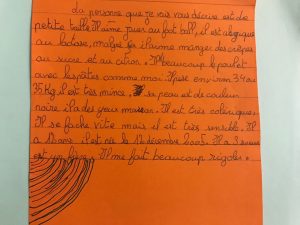 La personne que je vais vous décrire est de
petite taille. Il aime jouer au foot ball, il est allergique
au lactose, malgré ça il aime manger des crêpes
au sucre et au citron. Il beaucoup le poulet
avec les pâtes comme moi. Il pèse environ 34 ou
35 Kg il est très mince. sa peau est de couleur
noire il a des yeux marron. Il est très colérique.
Il se fache vite mais il est très sensible. Il
a ans il est né le 12 décembre 2005. Il a 3
est un frère. Il me fait beaucoup rigoler.